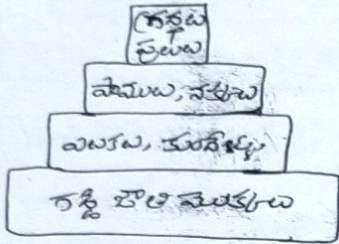 గ్రద్దలు
పులులు
పాములు, నక్కలు
ఎలుకలు, కుందేళ్ళు
గడ్డి జాతి మొక్కలు